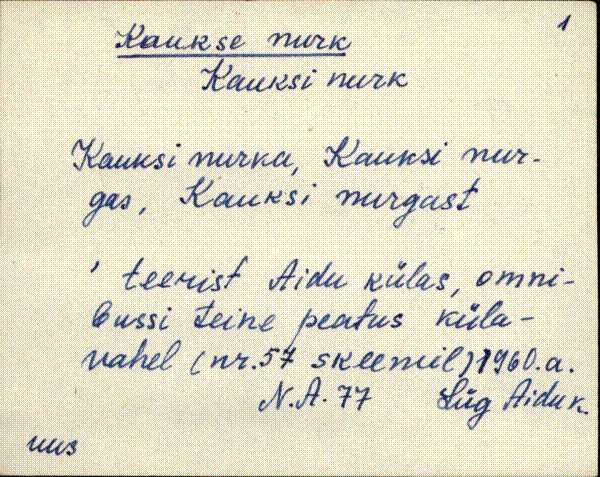 1
Kaukse nurk
Kauksi nurk
Kauksi nurka, Kauksi nur-
gas, Kauksi nurgast
' teerist Aidu külas, omni-
bussi teine peatus küla-
vahel (nr. 57 skeemil) 1960. a.
N.A. 77 Lüg Aidu k.
uus